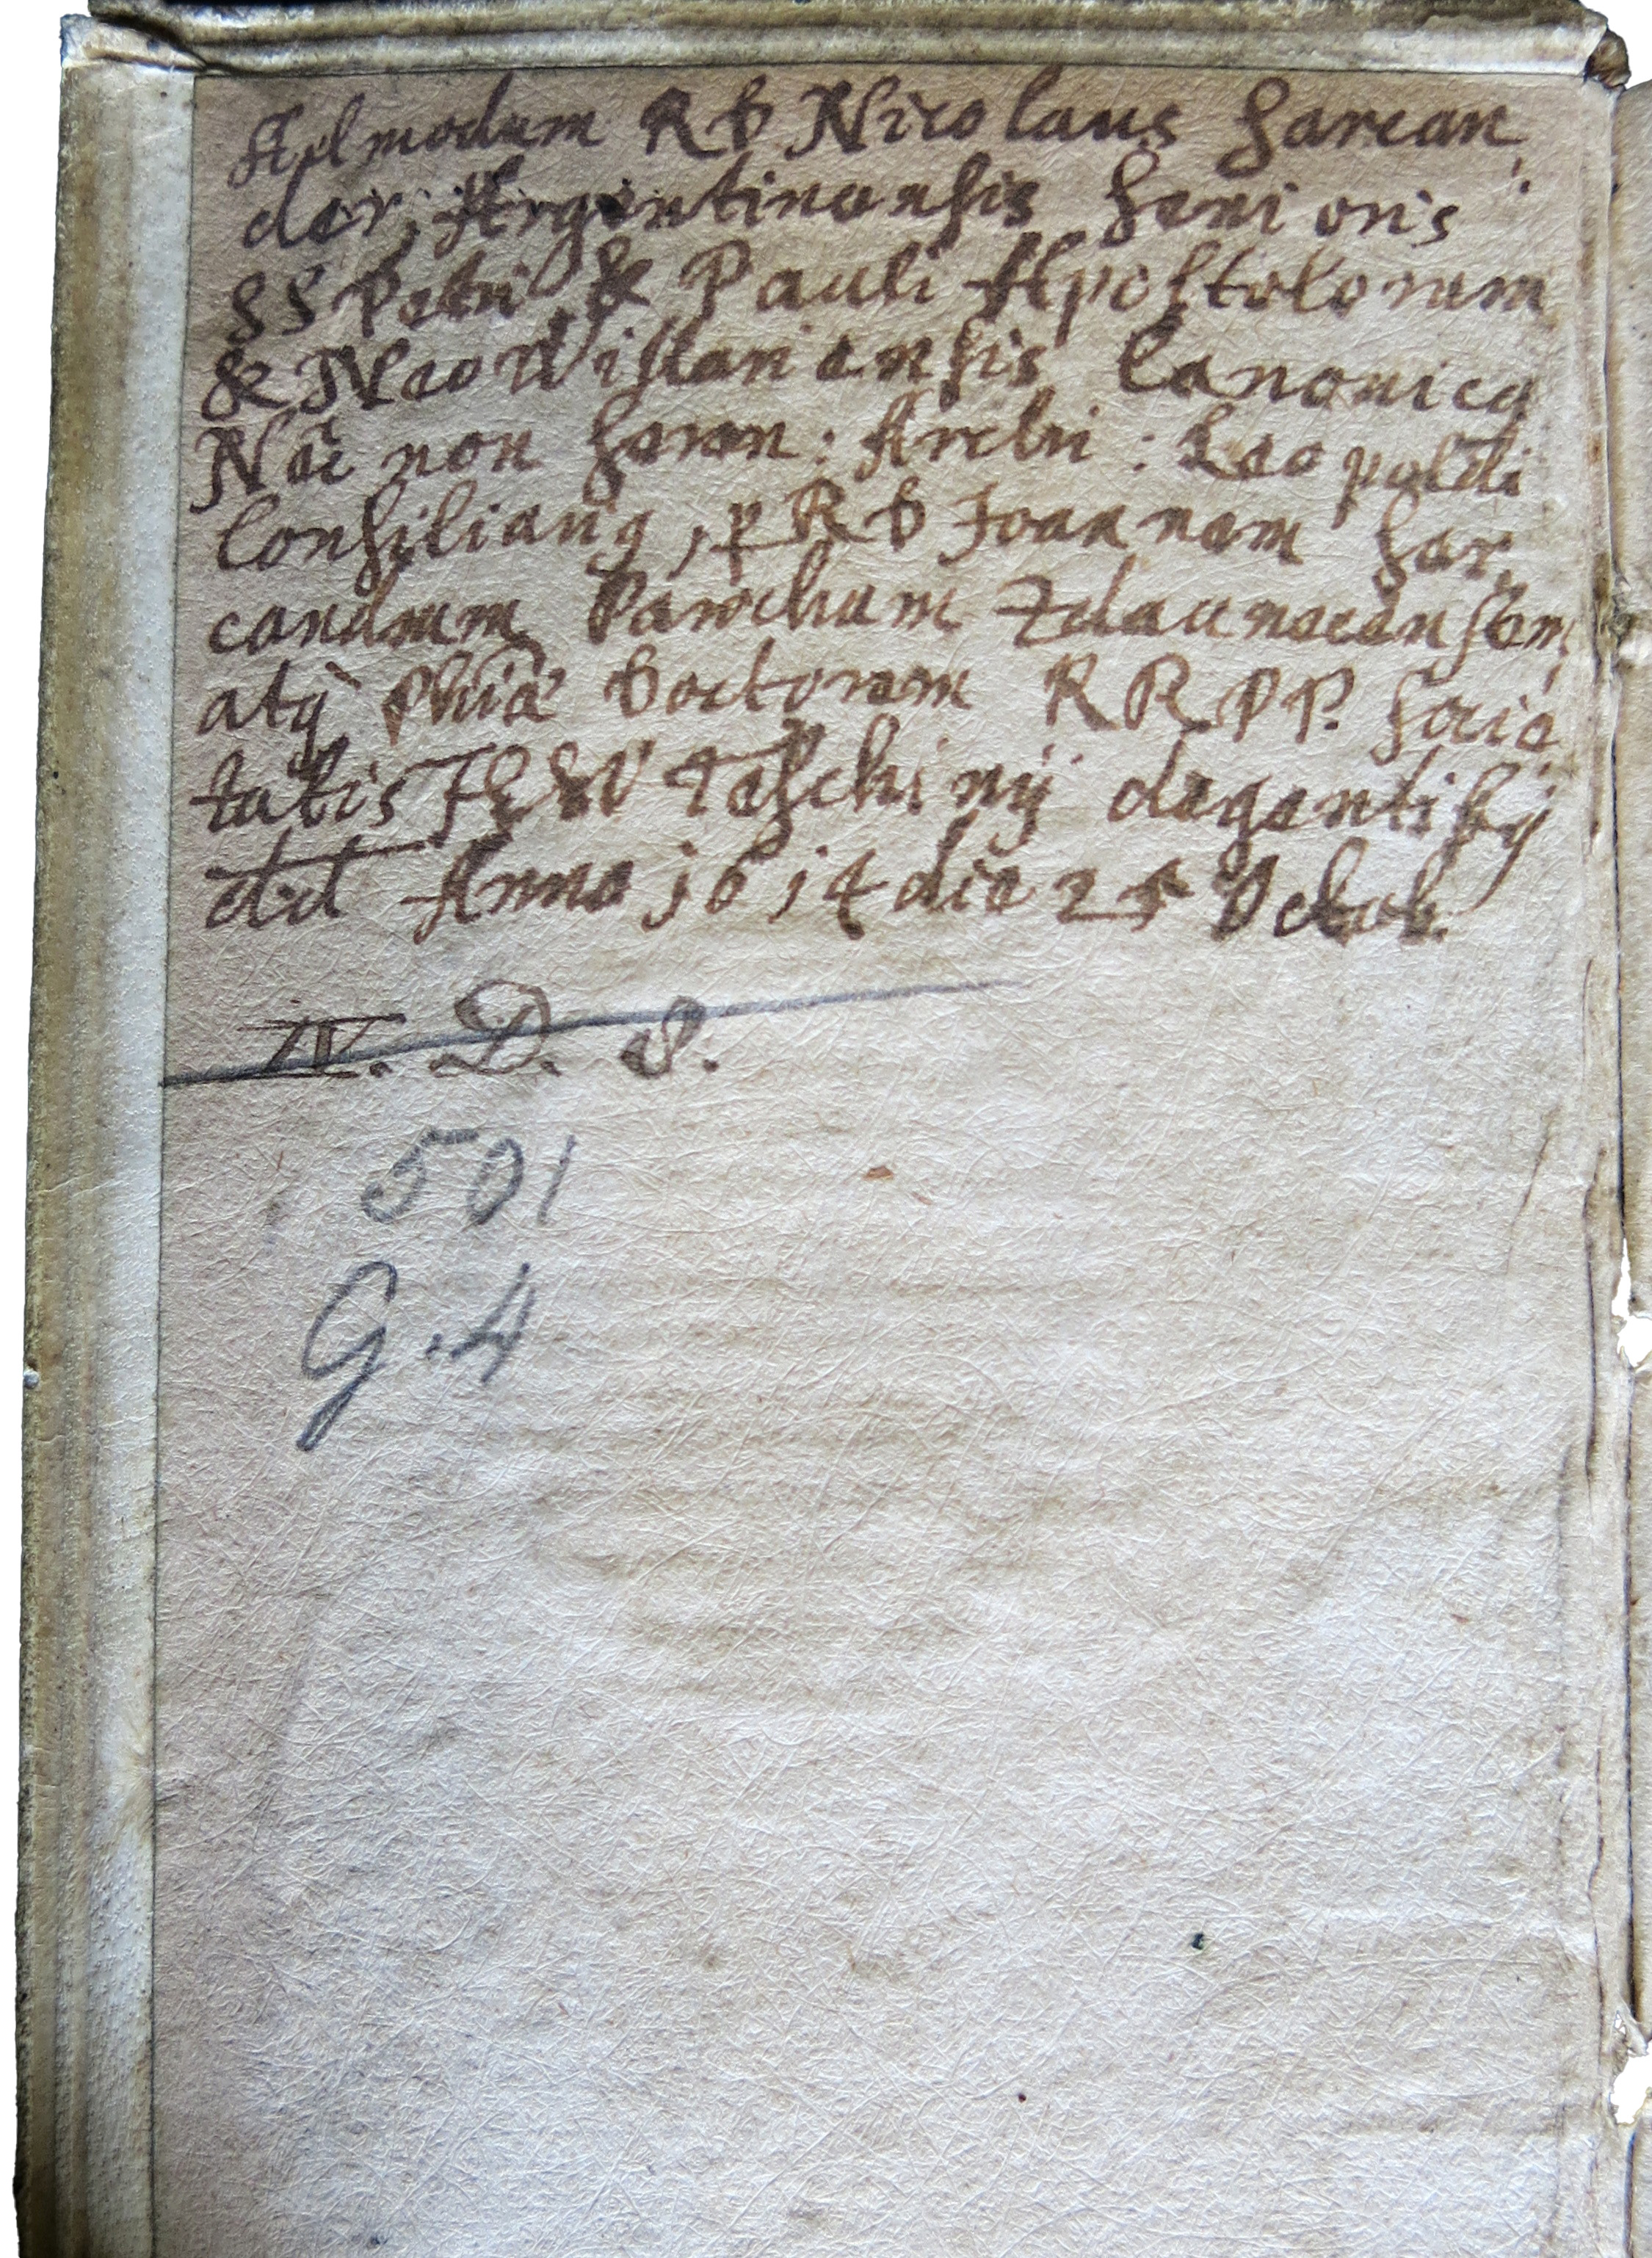 Admodum RD Nicolaus Sarcan,
der, Argentinensis Senioris
SS Petri & Pauli Apostolorum
& NeoWissanensis Canonicq
Nec non Seren: Archi: Leopoldi
Consiliariq, ꝑ RD Joannem Sar,
candrum Parochum Zdaunecensem
atq̀ Phiæ Doctorem RR PP. Socie,
tatis JESV Teschinij degentibq
dd Anno 1614 die 25 Octob.
IV. D. 8.
501
G. 4